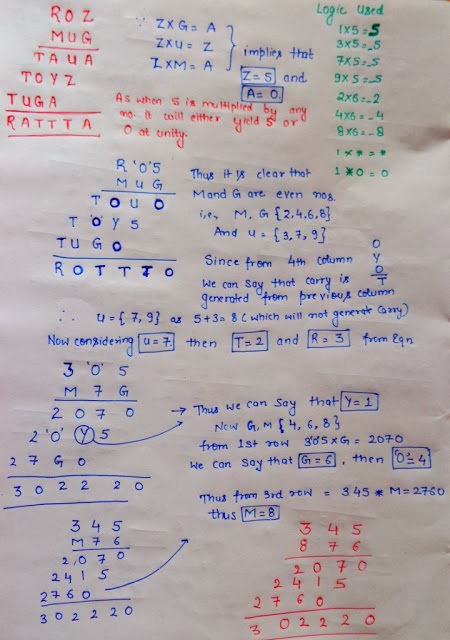 R O Z
M U G
T A U A
T O Y Z
T U G A
R A T T T A
∵ Z×G = A
Z×U = Z
Z×M = A
implies that
Z=5 and
A=0
As when 5 is multiplied by any
no. it will either yield 5 or
0 at unity.
Logic Used
1×5=5
3×5=_5
7×5=_5
9×5=_5
2×6=_2
4×6=_4
8×6=_8
1 * * = *
1 * 0 = 0
R 'O' 5
M U G
T O U 0
T 'O' Y 5
T U G 0
R 0 T T T 0
Thus it is clear that
M and G are even nos.
i.e., M, G {2,4,6,8}
And U = {3,7,9}
Since from 4th column
We can say that carry is
generated from previous column
O
Y
0
T
∴ U = {7,9} as 5+3=8 (which will not generate carry)
Now considering U=7 then T=2 and R=3 from Eqn
3 'O' 5
M 7 G
2 0 7 0
2 'O' Y 5
2 7 G 0
3 0 2 2 2 0
Thus we can say that Y=1
Now G, M {4, 6, 8}
from 1st row 3'O'5×G = 2070
we can say that G=6, then 'O'=4
Thus from 3rd row = 345 * M=2760
thus M=8
3 4 5
M 7 6
2,0 7 0
2 4 1 5
2 7 6 0
3 0 2 2 2 0
3 4 5
8 7 6
2 0 7 0
2 4 1 5
2 7 6 0
3 0 2 2 2 0